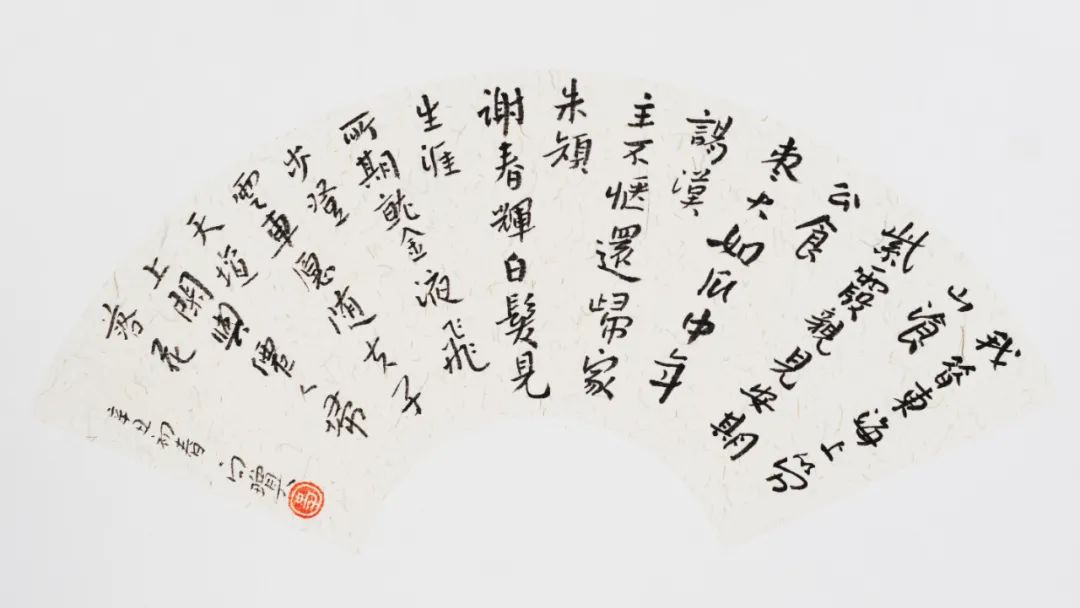 我昔東海上勞
山飡
紫霞親見安期
公食
棗大如瓜中年
謁漢
主不愜還歸家
朱顏
謝春輝白髮見
生涯
所期就金液飛
步登
雲車愿随夫子
天壇
上閑與僊人掃
落花
辛丑初春